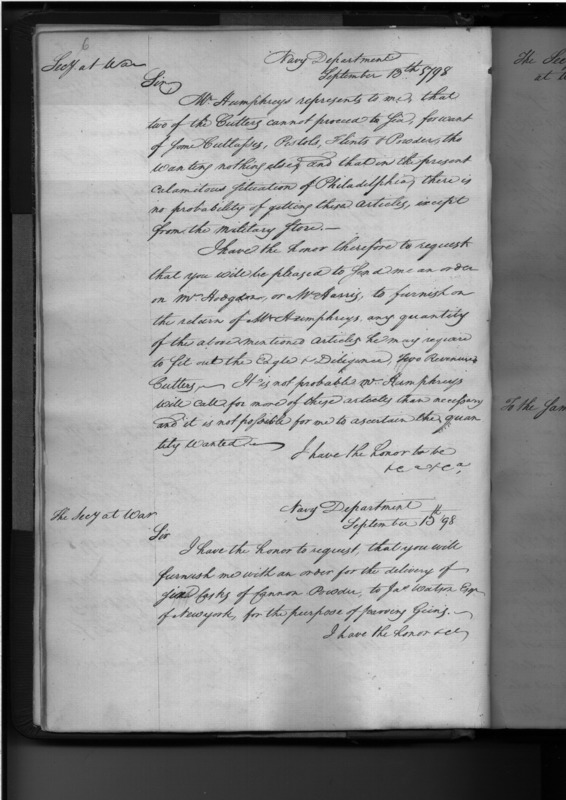 6
Secy at War
Navy Department
September 13th 1798
Sir
Mr Humphreys represents to me, that
two of the Cutters cannot proceed to Sea, for want
of some Cutlasses, Pistols, Flints & Powder, tho
wanting nothing else; and that in the present
calamitous situation of Philadelphia, there is
no probability of getting these articles, except
from the military store.—
I have the honor therefore to request
that you will be pleased to send me an order
on Mr Hodgdon, or Mr Harris, to furnish on
the return of Mr Humphreys any quantity
of the above mentioned articles he may require
to fit out the Eagle & Diligence, two Revenue
Cutters.— It is not probable Mr Humphreys
will call for more of these articles than necessary
and it is not possible for me to ascertain the quan
tity wanted.—
I have the honor to be
&c a &c a,
The Secy at War
Navy Department
September 13th 98
Sir
I have the honor to request, that you will
furnish me with an order for the delivery of
Casks of Cannon Powder, to Jas Watson Esqr
of New york, for the purpose of proving Guns.—
I have the honor &c
The Sec
at W
To the Sam